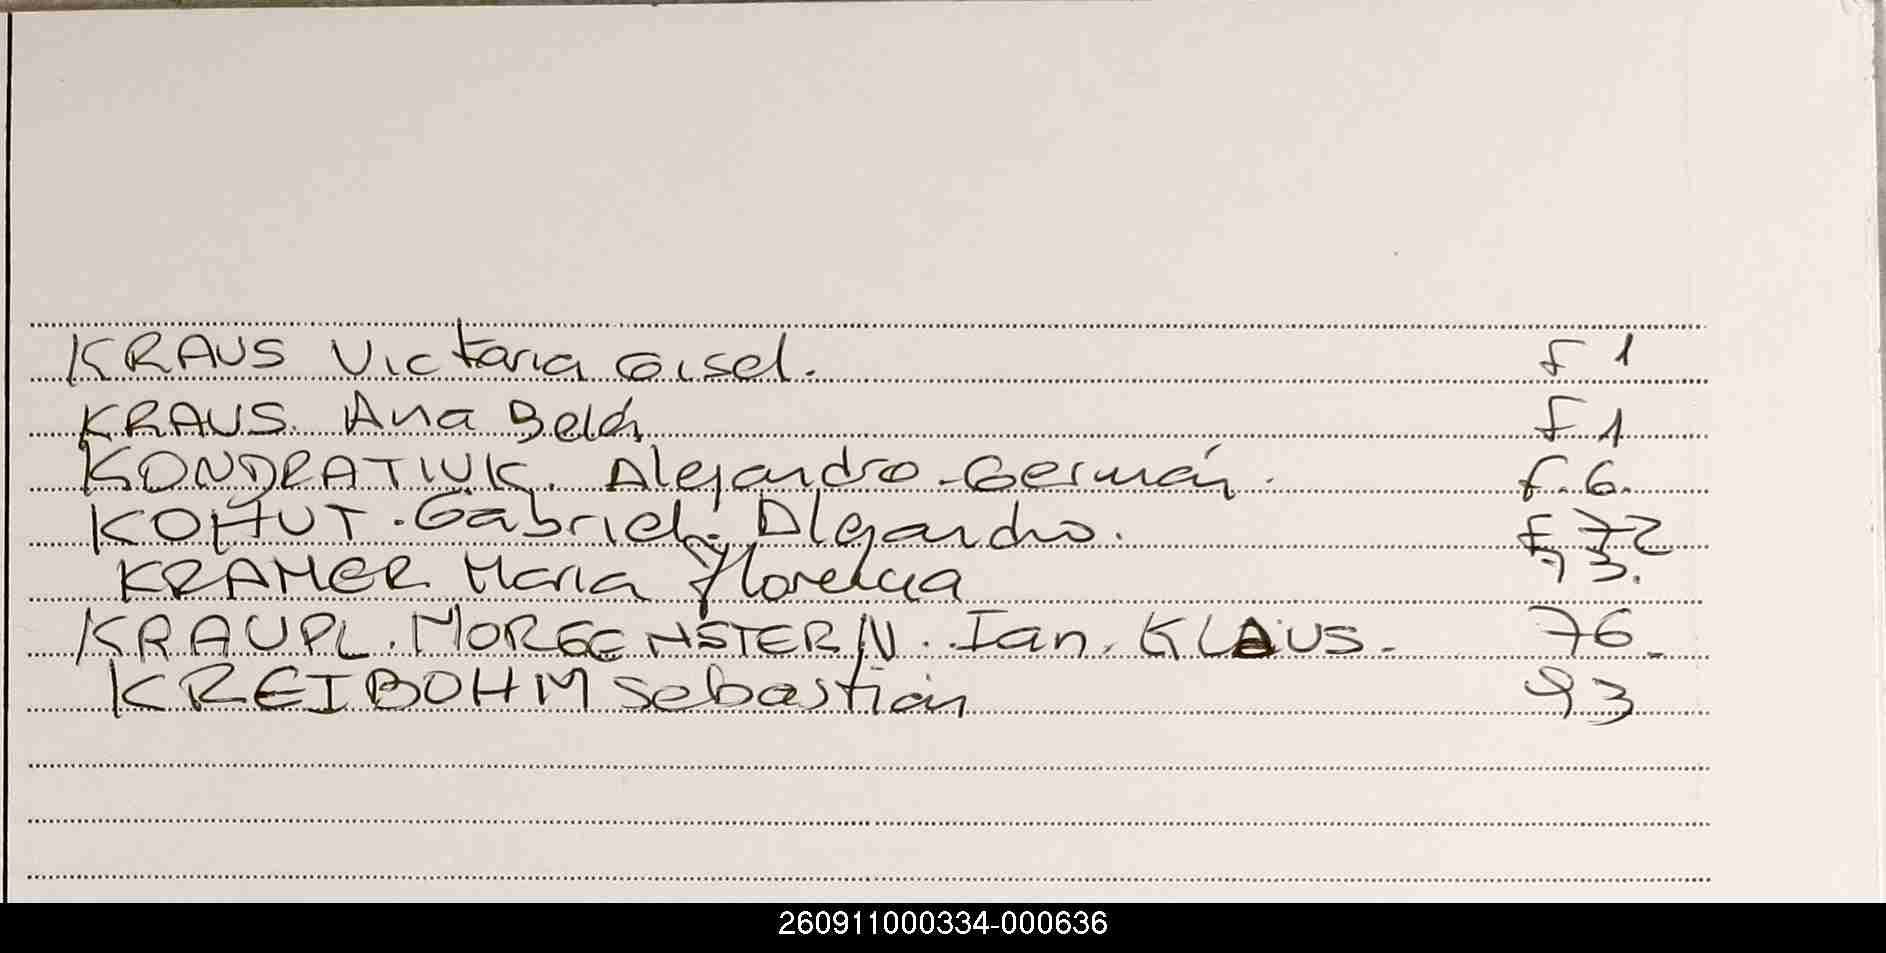 KRAUS Victoria Gisel. F 1
KRAUS. Ana Belén F 1
KONDRATIUK. Alejandro Germán. F. 6.
KOHUT. Gabriel. Alejandro. F 72
KRAMER Maria Florencia 73.
KRAUPL. MORGENSTERN. Ian. KLAUS. 76.
KREIBOHM Sebastián 93
260911000334-000636